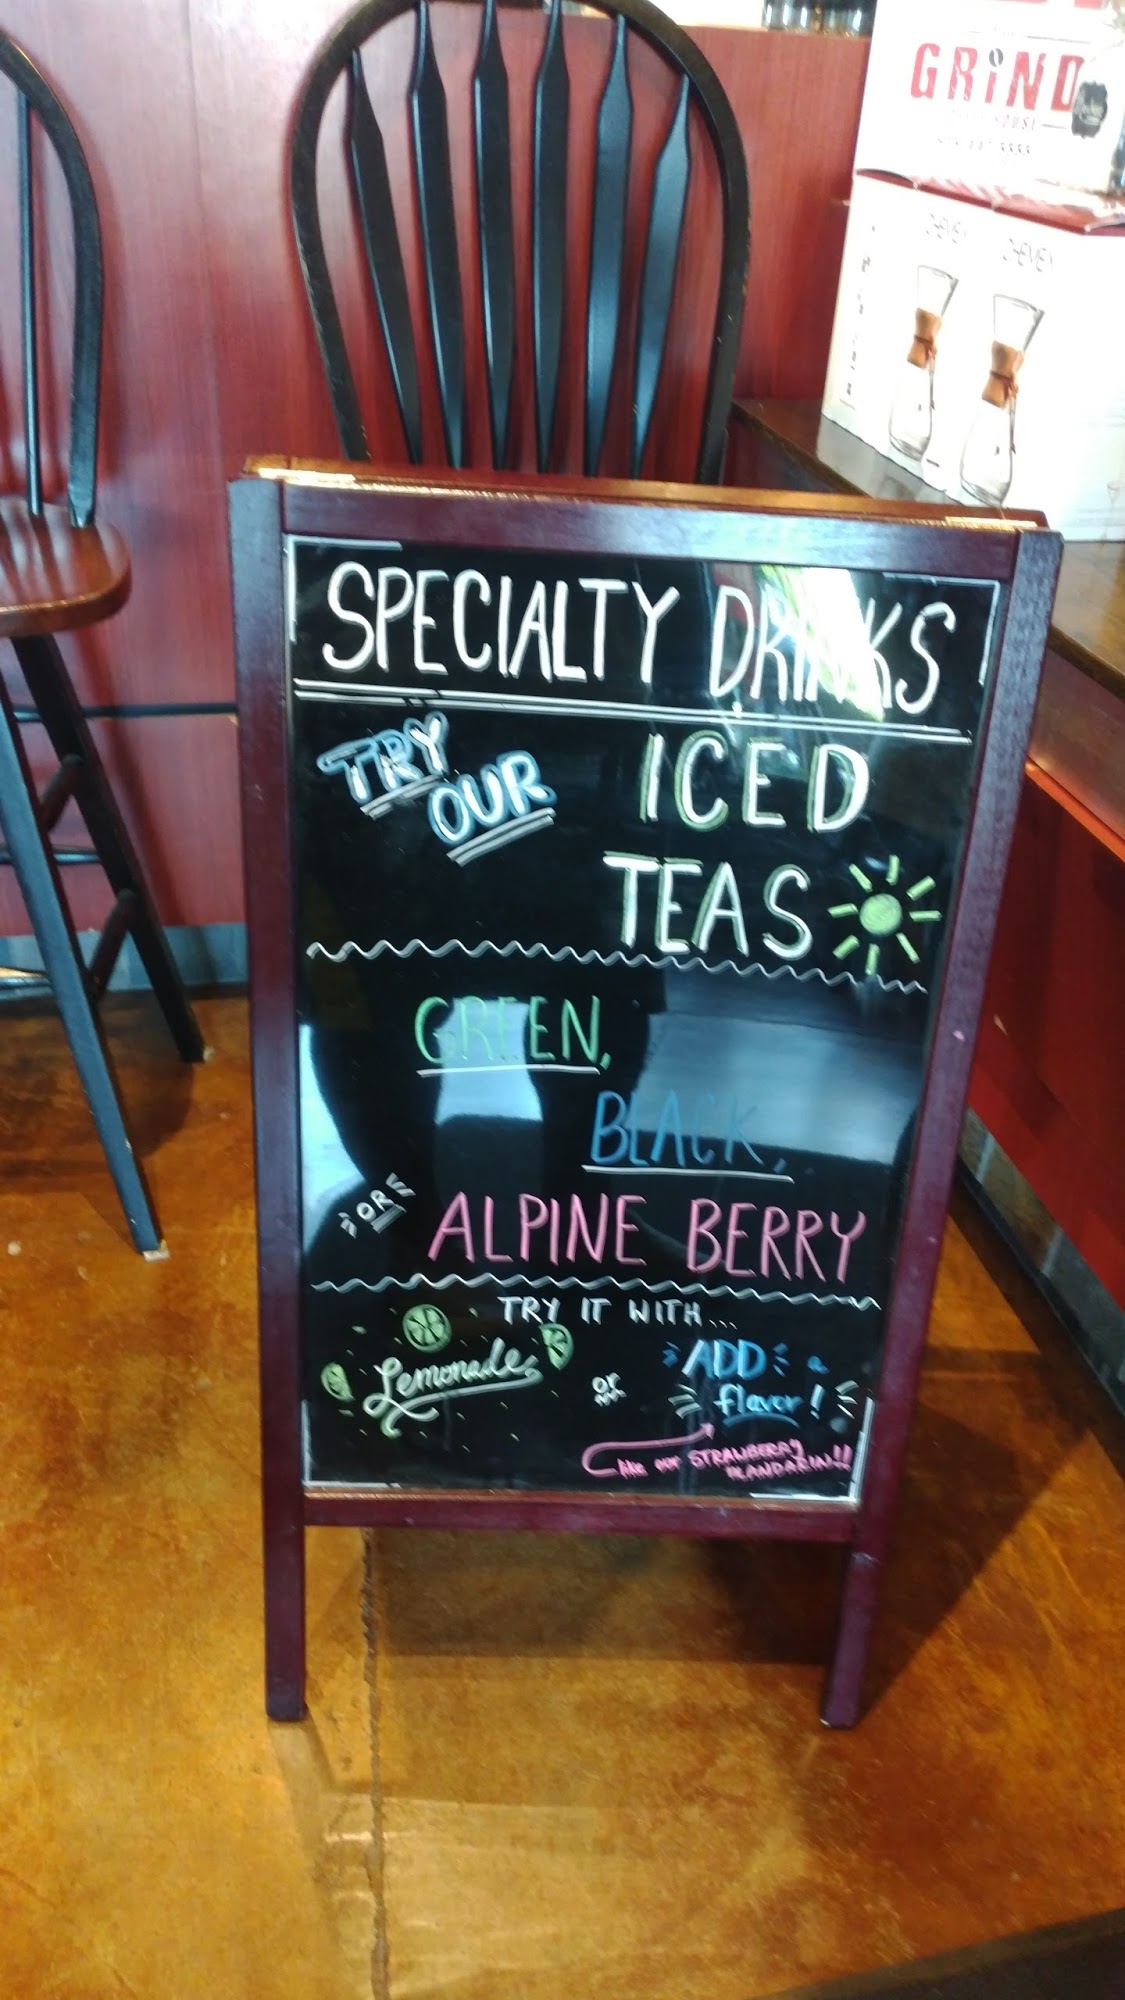 GRIND
CHEMEX CHEMEX
SPECIALTY DRINKS
TRY OUR
ICED
TEAS
GREEN,
BLACK,
ORE
ALPINE BERRY
TRY IT WITH...
Lemonade
or
ADD a
flavor!
like our STRAWBERRY
MANDARIN!!